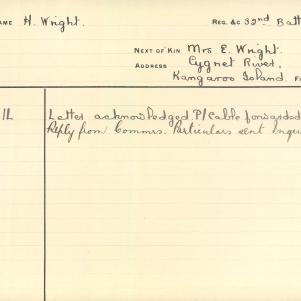 NAME H. Wright.
REG. &C 32nd Batt
NEXT OF KIN Mrs E. Wright.
ADDRESS Cygnet River,
Kangaroo Island.
IL Letter acknowledged P/Cable forwarded
Reply from Commrs. Particulars sent